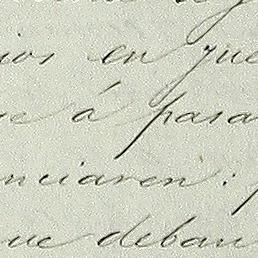 ios en que
ue á pasa
nciaren:
que deban